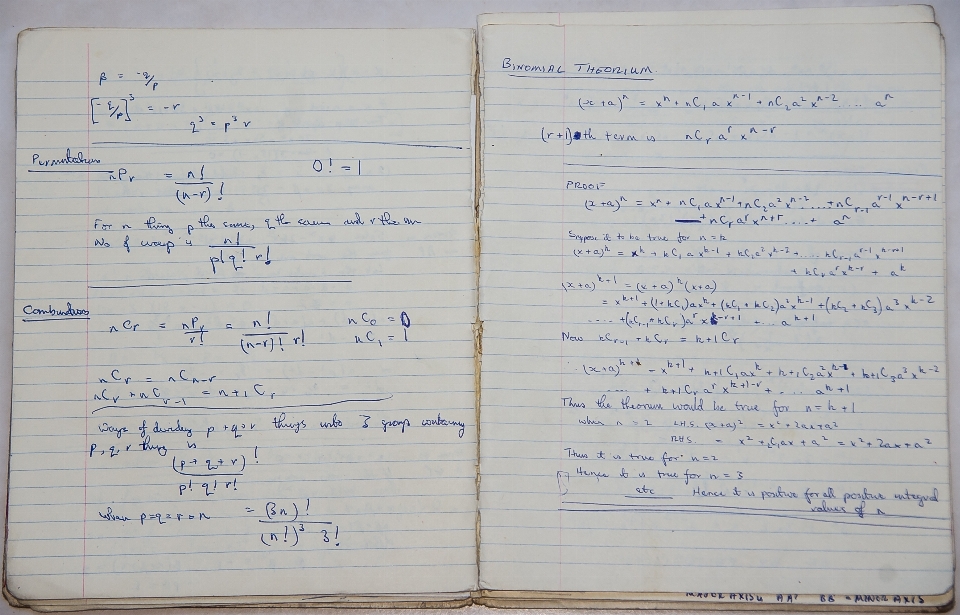 β = -q/p
[-q/p]³ = -r
q³ = p³ r
Permutations
nPr = n!/(n-r)! 0! = 1
For n things p the same, q the same and r the same
No of ways is n!/p! q! r!
Combinations
nCr = nPr/r! = n!/(n-r)! r! nC₀ = 0
nC₁ = 1
nCr = nCn-r
nCr + nCr-1 = n+1 Cr
Ways of dividing p+q+r things into 3 groups containing
p, q, r things is
(p+q+r)!/p! q! r!
when p=q=r=n = (3n)!/(n!)³ 3!
BINOMIAL THEORIUM
(x+a)ⁿ = xⁿ + nC₁ a xⁿ⁻¹ + nC₂ a² xⁿ⁻² .... aⁿ
(r+1) th term is nCr aʳ xⁿ⁻ʳ
PROOF
(x+a)ⁿ = xⁿ + nC₁ a xⁿ⁻¹ + nC₂ a² xⁿ⁻² .... + nCr-1 aʳ⁻¹ xⁿ⁻ʳ⁺¹
+ nCr aʳ xⁿ⁺ʳ .... + aⁿ
Suppose it to be true for n = k
(x+a)ᵏ = xᵏ + kC₁ a xᵏ⁻¹ + kC₂ a² xᵏ⁻² + .... kCr-1 aʳ⁻¹ xᵏ⁻ʳ⁺¹
+ kCr aʳ xᵏ⁻ʳ + aᵏ
(x+a)ᵏ⁺¹ = (x+a)ᵏ (x+a)
= xᵏ⁺¹ + (1+kC₁) a xᵏ + (kC₁ + kC₂) a² xᵏ⁻¹ + (kC₂ + kC₃) a³ xᵏ⁻²
.... + (kCr-1 + kCr) aʳ xᵏ⁻ʳ⁺¹ + ... aᵏ⁺¹
Now kCr-1 + kCr = k+1 Cr
∴ (x+a)ᵏ⁺¹ = xᵏ⁺¹ + k+1C₁ a xᵏ + k+1C₂ a² xᵏ⁻¹ + k+1C₃ a³ xᵏ⁻²
.... + k+1Cr aʳ xᵏ⁺¹⁻ʳ + ... aᵏ⁺¹
Thus the theorium would be true for n = k+1
when n = 2 L.H.S. (x+a)² = x² + 2ax + a²
R.H.S. = x² + ₂C₁ax + a² = x² + 2ax + a²
Thus it is true for n=2
Hence it is true for n = 3
etc Hence it is positive for all positive integral
values of n
MAJOR AXIS = AA' BB' = MINOR AXIS